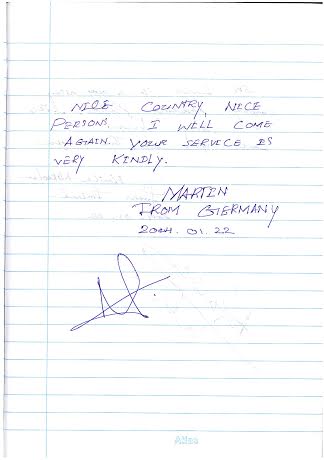 NICE COUNTRY, NICE
PERSONS. I WILL COME
AGAIN. YOUR SERVICE IS
VERY KINDLY.
MARTIN
FROM GERMANY
2004.01.22
Atlas